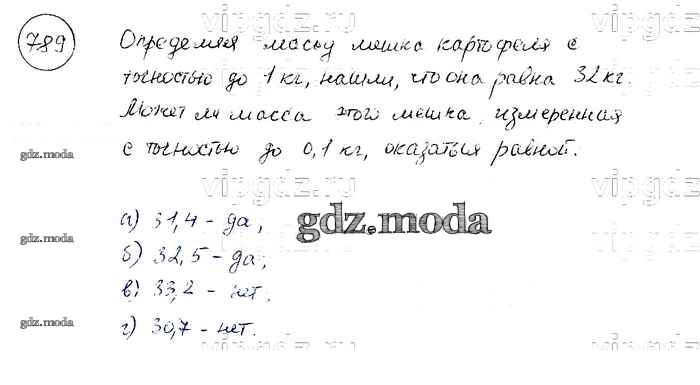 vipgdz.ru
789 Определяя массу мешка картофеля с
точностью до 1 кг, нашли, что она равна 32 кг.
Может ли масса этого мешка, измеренная
gdz.moda
с точностью до 0,1 кг, оказаться равной:
vipgdz.ru
а) 31,4 - да,
gdz.moda
б) 32,5 - да;
в) 33,2 - нет.
gdz.moda
г) 30,7 - нет.
vipgdz.ru